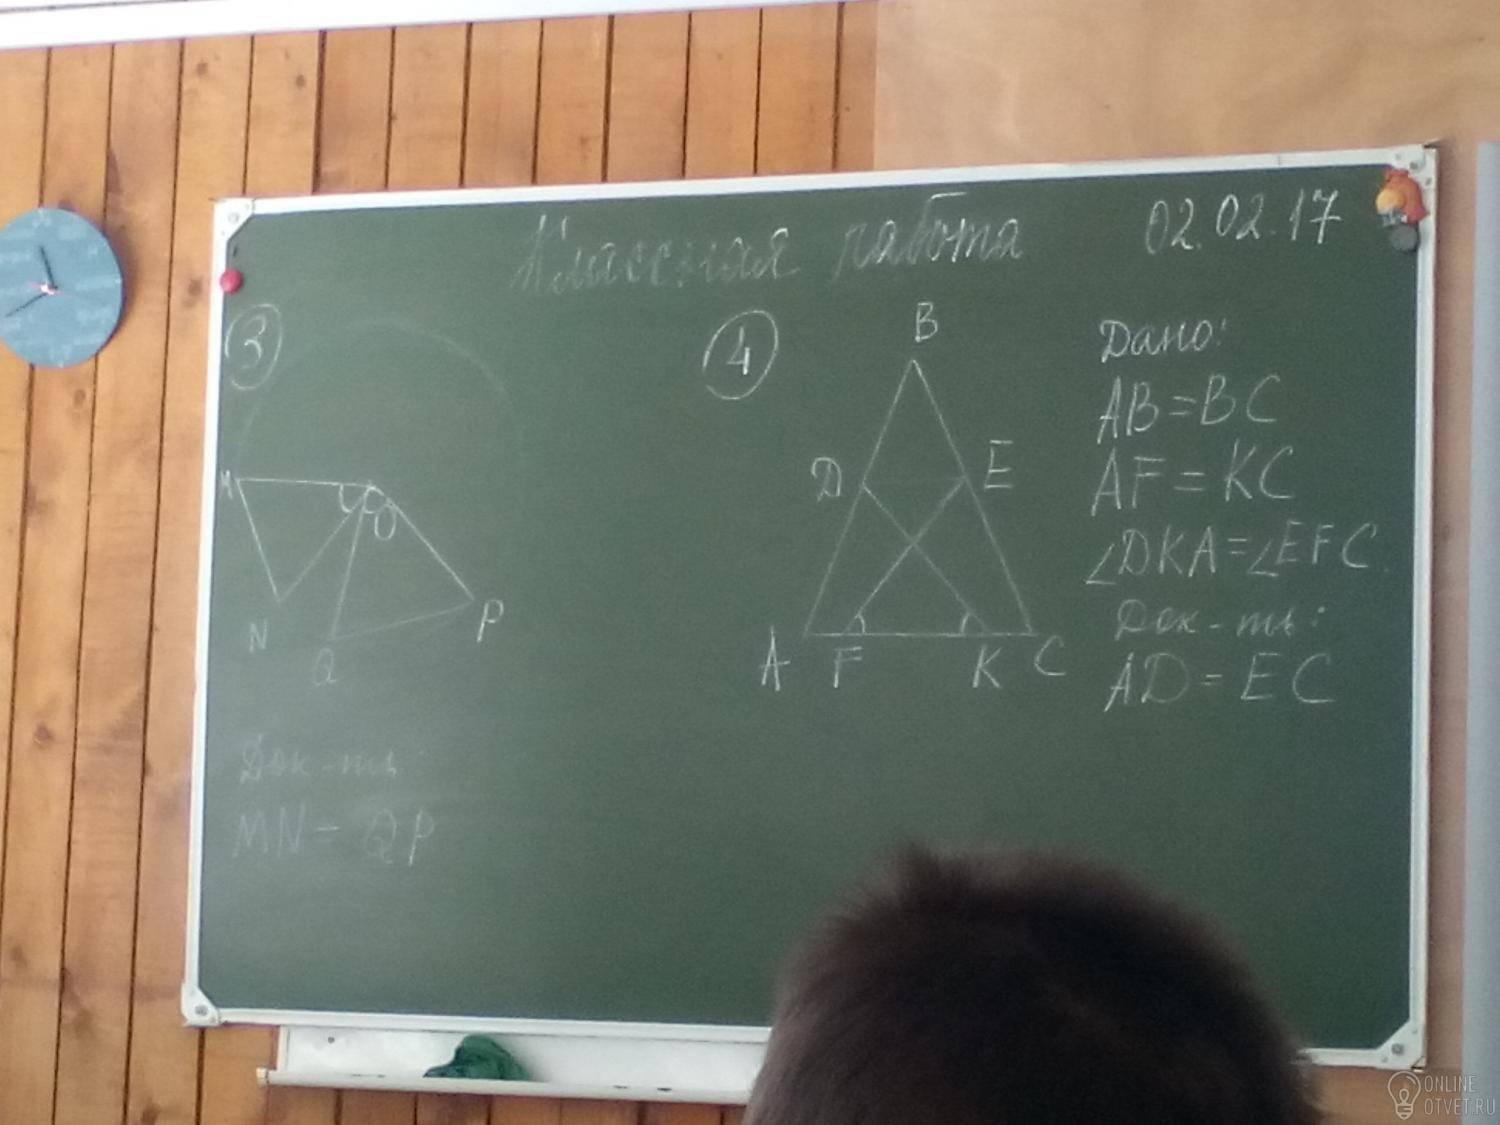 Классная работа 02.02.17
3
M
O
N
Q
P
Док-ть
MN = QP
4
B
D
E
A F K C
Дано:
AB = BC
AF = KC
∠DKA = ∠EFC.
Док-ть:
AD = EC
ONLINE
OTVET.RU